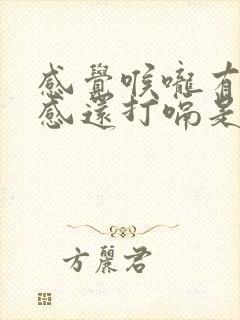 感覺喉嚨有
感還打嗝是
方麗君